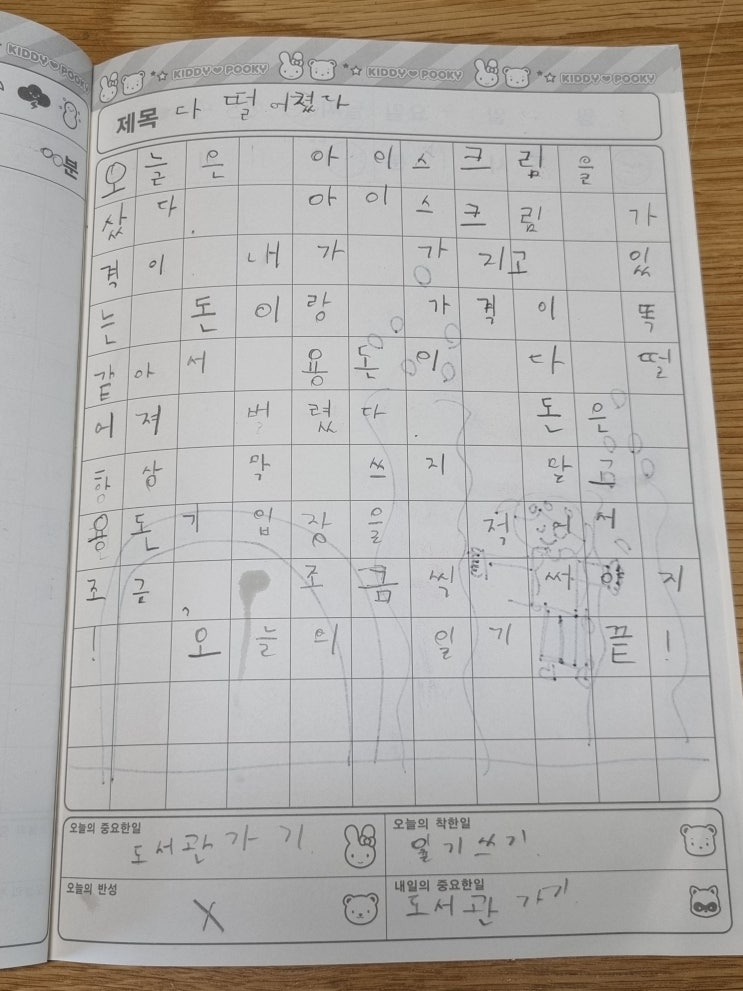 KIDDY♥POOKY
KIDDY♥POOKY KIDDY♥POOKY KIDDY♥POOKY
분
제목 다 떨어졌다
오늘은 아이스크림을
샀다. 아이스크림 가
격이 내가 가지고 있
는 돈이랑 가격이 똑
같아서 용돈이 다 떨
어져 버렸다. 돈은
항상 막 쓰지 말고
용돈기입장을 적어서
조금, 조금씩 써야지
! 오늘의 일기 끝!
오늘의 중요한일
도서관 가기.
오늘의 착한일
일기쓰기.
오늘의 반성
X
내일의 중요한일
도서관 가기.